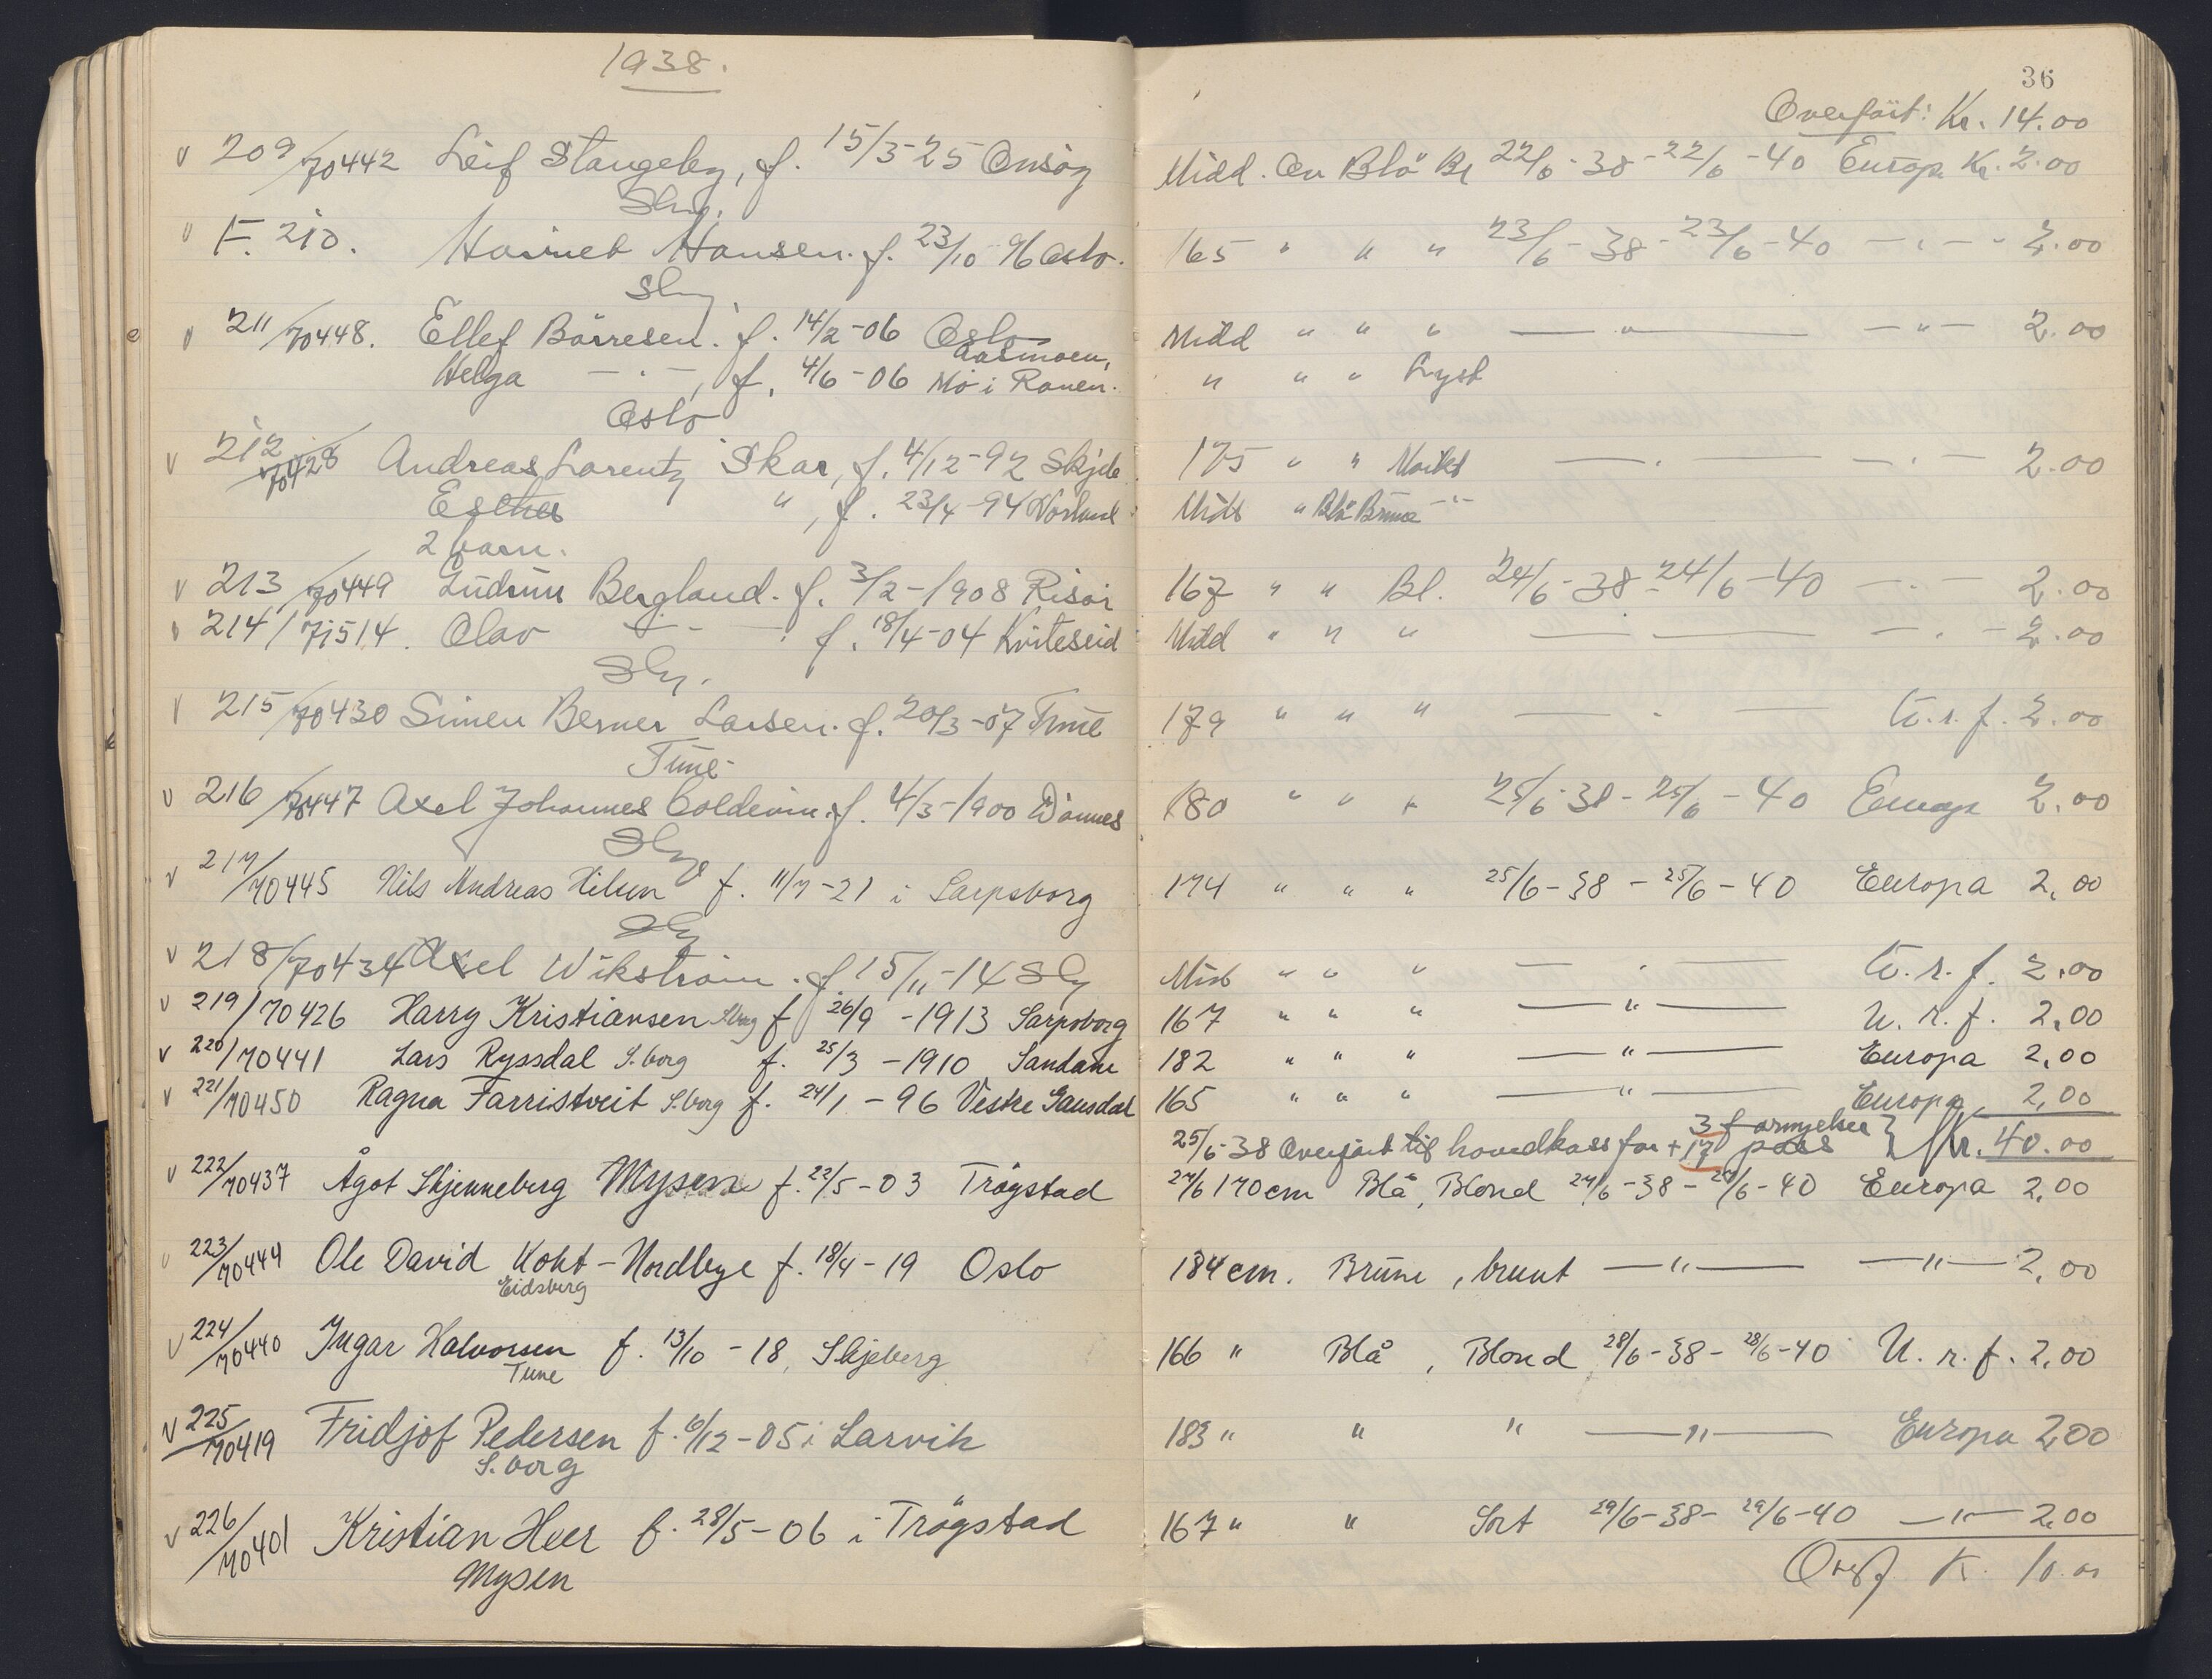 1938.
36
Overført: Kr. 14.00
v 209/70442 Leif Stangeby, f. 15/3-25 Onsøy Midd. Ov Blå Bl 22/6-38-22/6-40 Europ Kr. 2.00
Sbg.
v F. 210. Harriet Hansen. f. 23/10 96 Oslo. 165 " " " 23/6-38-23/6-40 —"— 2.00
Sbg.
v 211/70448. Ellef Børresen. f. 14/2-06 Oslo Midd " " " —"— —"— 2.00
Aasmoen,
Helga —"—, f. 4/6-06 Mo i Ranen. " " " Lyst
Oslo
v 212/70428 Andreas Lorentz Skar, f. 4/12-92 Skjeb 175 " " Mørkt —"— —"— 2.00
Esther " , f. 23/4-94 Mids " Blå Brune —"—
2 barn.
v 213/70449 Gudrun Bergland. f. 3/2-1908 Risør 167 " " Bl. 24/6-38-24/6-40 —"— 2.00
v 214/71514. Olav —"— f. 18/4-04 Kviteseid Midd " " " —"— —"— 2.00
Sbg.
v 215/70430 Simen Berner Larsen. f. 20/3-07 Tune 179 " " " —"— U.r.f. 2.00
Tune
v 216/70447 Axel Johannes Coldevin. f. 4/3-1900 Dønnes 180 " " " 25/6-38-25/6-40 Europ 2.00
Sbg
v 217/70445 Nils Andreas Nilsen f. 11/7-21 i Sarpsborg 174 " " " 25/6-38-25/6-40 Europa 2,00
Sbg
v 218/70434 Axel Wikstrøm. f. 15/11-14 Sbg Mid " " " —"— U.r.f. 2.00
v 219/70426 Harry Kristiansen Sbrg f 26/9-1913 Sarpsborg 167 " " " —"— U.r.f. 2,00
v 220/70441 Lars Ryssdal S.borg f. 25/3-1910 Sandane 182 " " " —"— Europa 2,00
v 221/70450 Ragna Farristveit S.borg f. 24/1-96 Vestre Gausdal 165 " " " —"— Europa 2,00
3 fornyelser
25/6-38 Overført til hovedkass for + 17 pass } Kr. 40.00
v 222/70437 Ågot Skjenneberg Mysen f. 22/5-03 Trøgstad 27/6 170cm Blå, Blond 27/6-38-27/6-40 Europa 2,00
v 223/70444 Ole David Koht-Nordbye f. 18/4-19 Oslo 184cm. Brune, brunt —"— —"— 2,00
Eidsberg
v 224/70440 Ingar Halvorsen f. 13/10-18, Skjeberg 166 " Blå, Blond 28/6-38-28/6-40 U.r.f. 2,00
Tune
v 225/70419 Fridjof Pedersen f. 6/12-05 i Larvik 183 " " " —"— Europa 2,00
S.borg
v 226/70401 Kristian Heer f. 28/5-06 i Trøgstad 167 " " Sort 29/6-38-29/6-40 —"— 2,00
Mysen
Overf K. 10.00